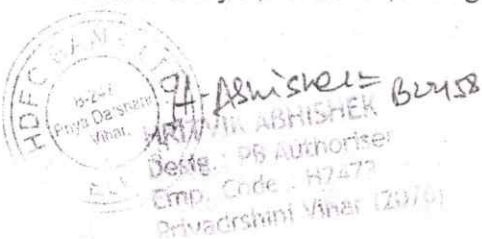 HDFC BANK LTD
B-247
Priya Darshani
Vihar.
H-Abhishek B22458
ABHISHEK
Desig. : PB Authoriser
Emp. Code : H2472
Priyadrshini Vihar (2076)